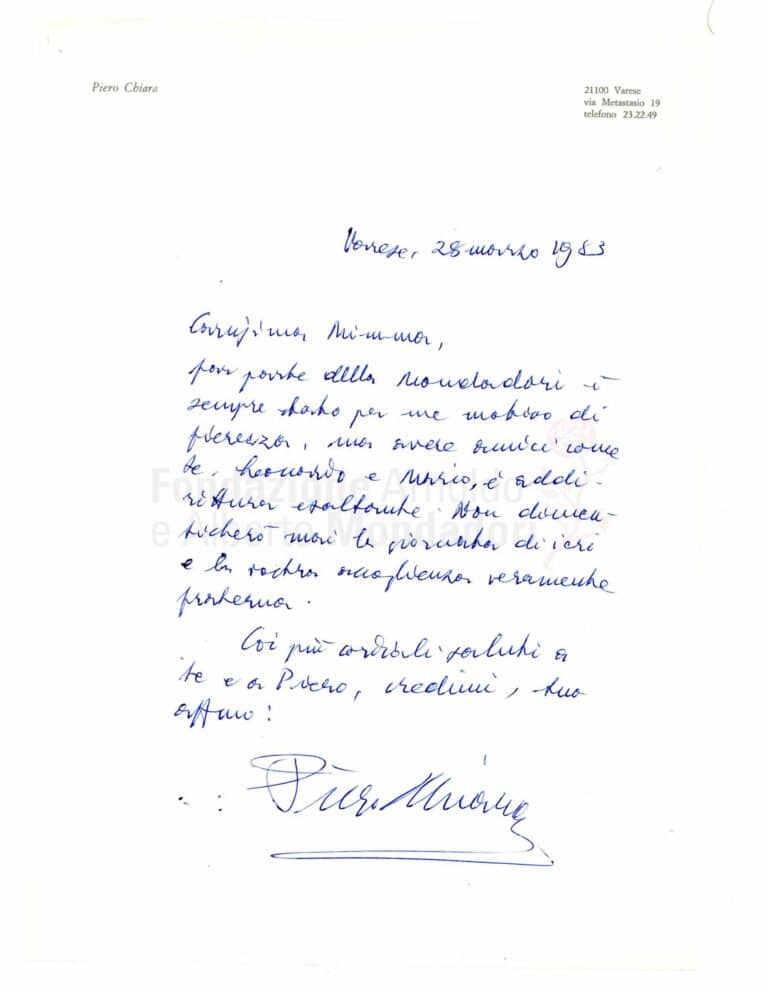 Piero Chiara
21100 Varese
via Metastasio 19
telefono 23.22.49
Varese, 28 marzo 1983
Carissima Mimma,
far parte della Mondadori è
sempre stato per me motivo di
fierezza, ma avere amici come
te, Leonardo e Mario, è addi-
rittura esaltante. Non dimen-
ticherò mai la giornata di ieri
e la vostra accoglienza veramente
fraterna.
Coi più cordiali saluti a
te e a Piero, credimi, tuo
aff.mo:
Piero Chiara
Fondazione Arnoldo
e Alberto Mondadori